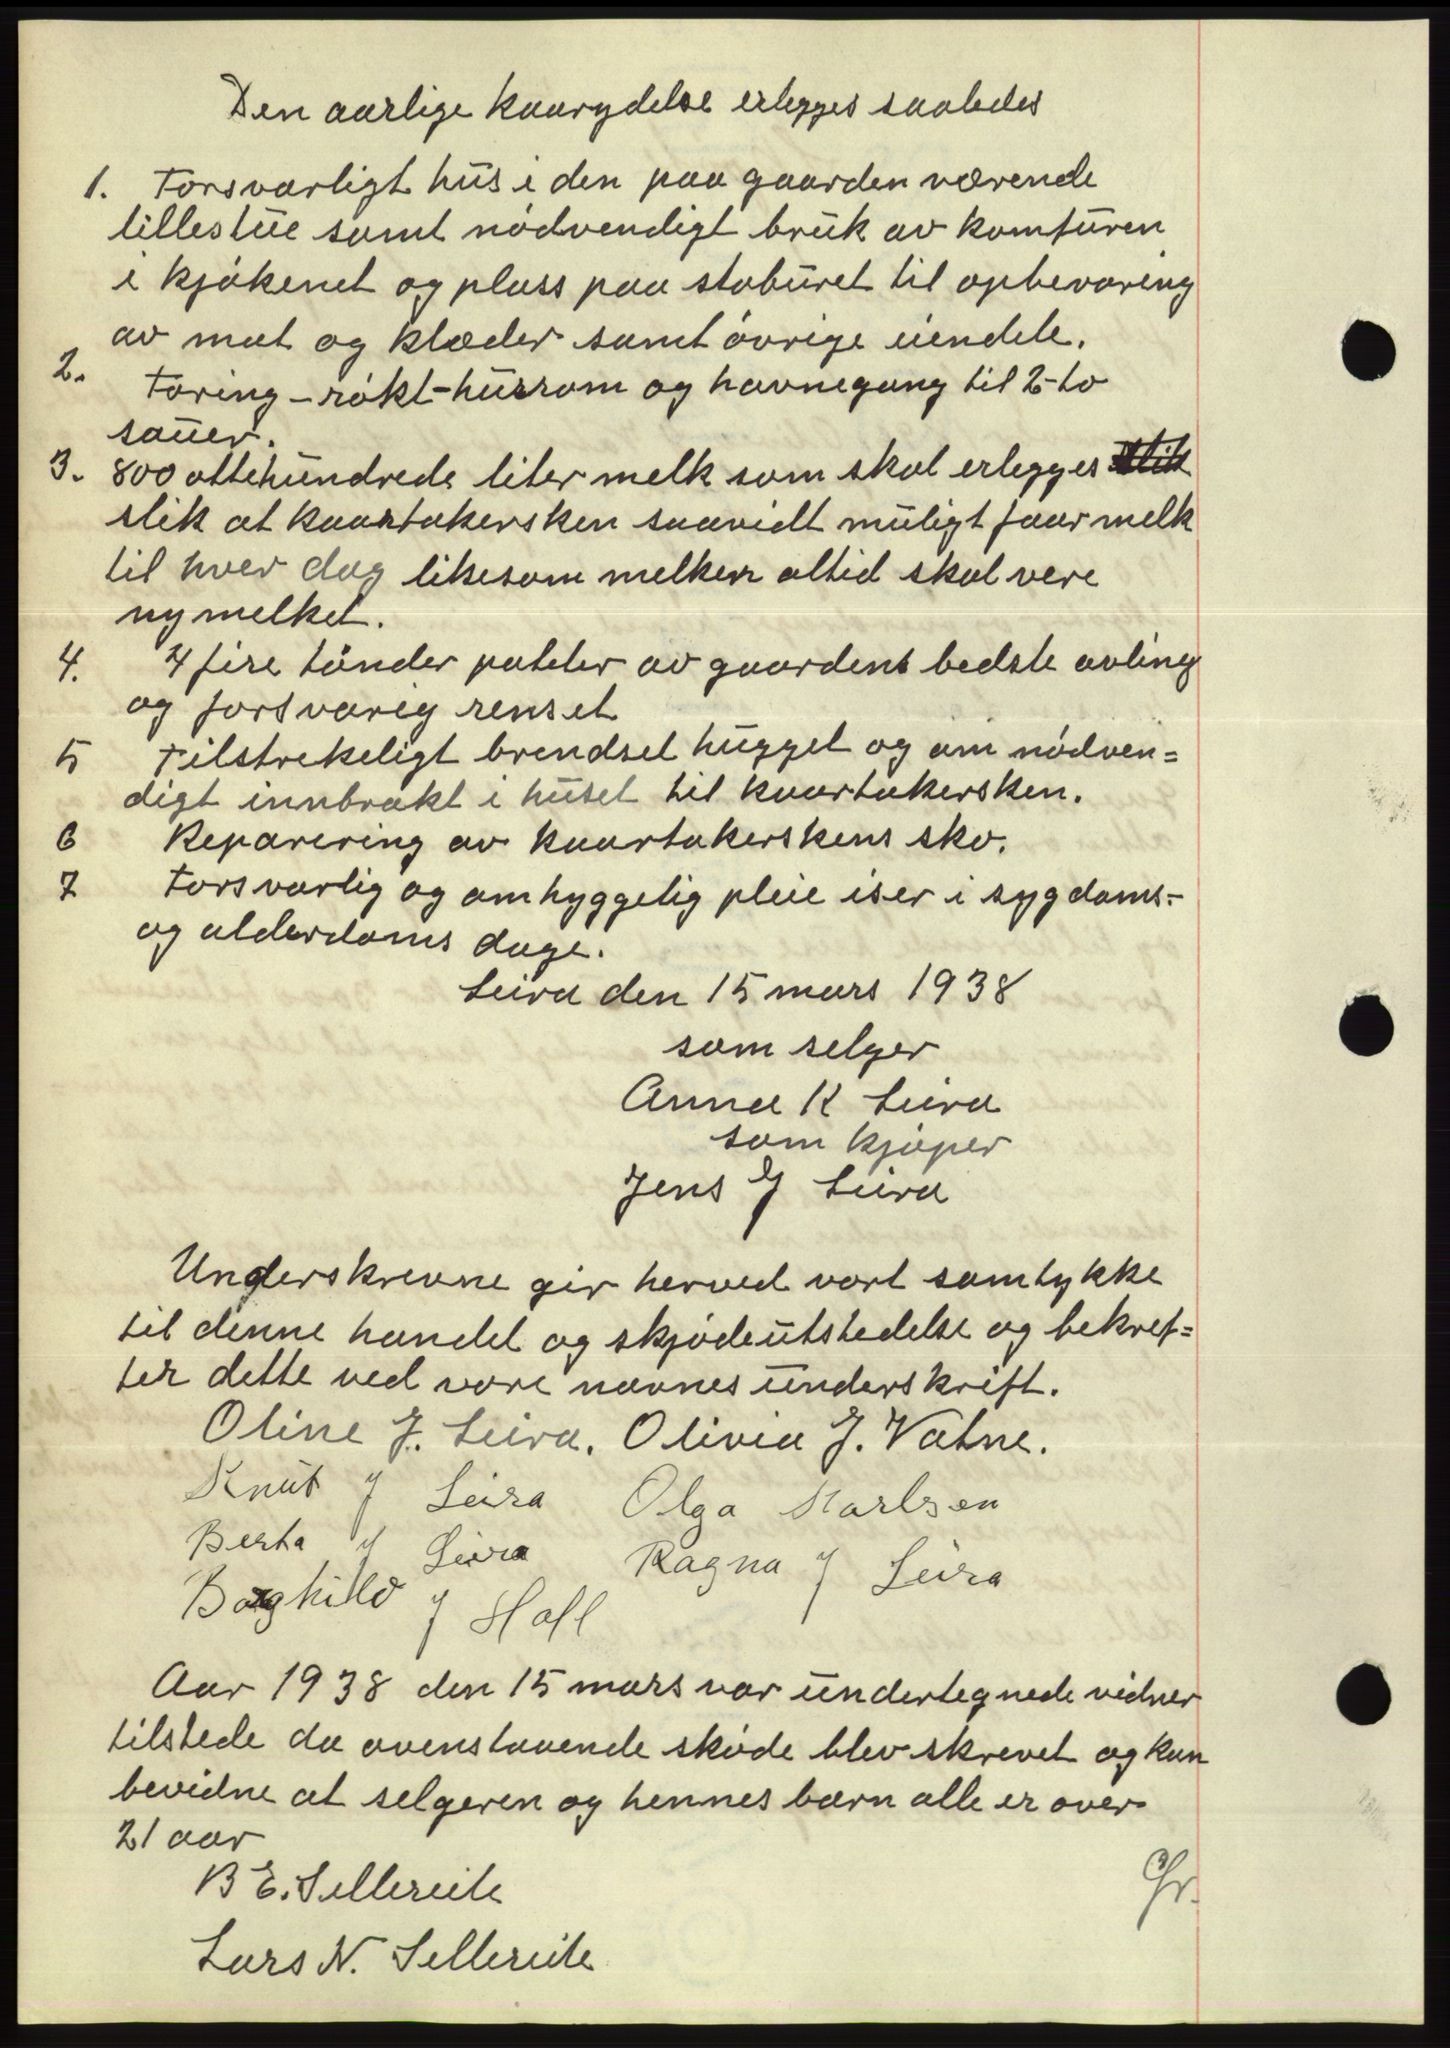 Den aarlige kaarydelse erlegges saaledes
1. Forsvarligt hus i den paa gaarden værende
lillestue samt nødvendigt bruk av komfuren
i kjøkenet og plass paa staburet til opbevaring
av mat og klæder samt øvrige eiendele.
2. Foring-røkt-husrom og havnegang til 2-to
sauer.
3. 800 ottehundrede liter melk som skal erlegges slik
slik at kaartakersken saavidt muligt faar melk
til hver dag likesom melken altid skal vere
nymelket.
4. 4 fire tønder poteter av gaardens bedste avling
og forsvarig renset
5 Tilstrekeligt brendsel hugget og om nødven=
digt innbrakt i huset til kaartakersken.
6 Reparering av kaartakerskens sko.
7 Forsvarlig og omhyggelig pleie iser i sygdoms-
og alderdoms dage.
Leira den 15 mars 1938
som selger
Anna K Leira
som kjøper
Jens J Leira
Underskrevne gir herved vort samtykke
til denne handel og skjødeutstedelse og bekref=
ter dette ved vore navnes underskrift.
Oline J. Leira. Olivia J. Vatne.
Knut J Leira Olga Karlsen
Berta J Leira Ragna J Leira
Borghild J Hall
Aar 1938 den 15 mars var undertegnede vidner
tilstede da ovenstaaende skøde blev skrevet og kan
bevidne at selgeren og hennes barn alle er over
21 aar
B E. Sellereite
Lars N. Sellereite